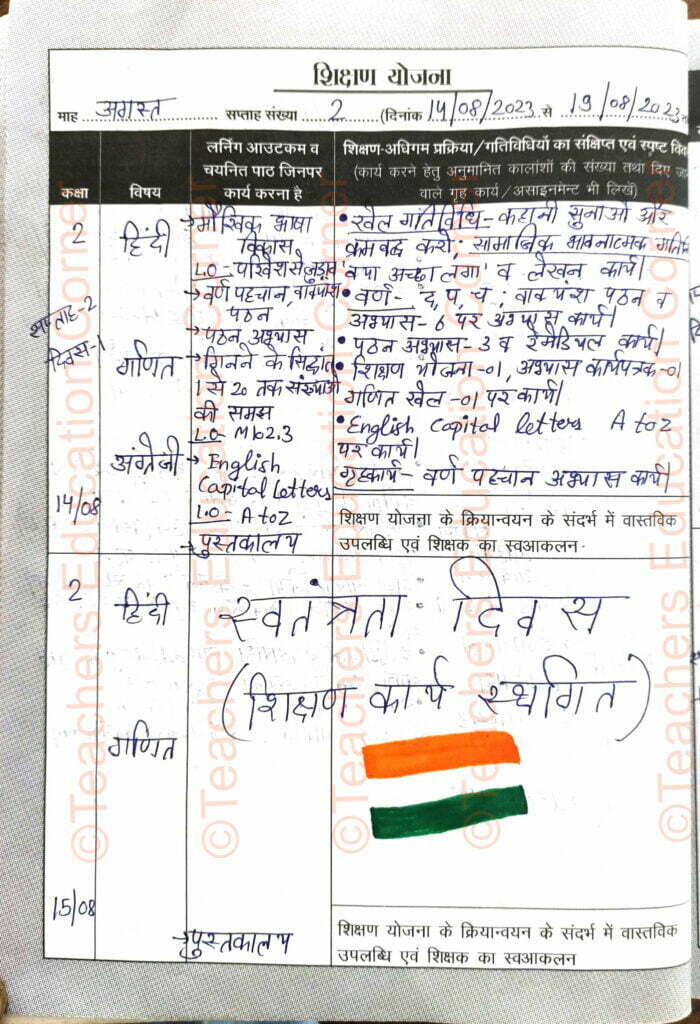 शिक्षण योजना
माह अगस्त सप्ताह संख्या 2 (दिनांक 14/08/2023 से 19/08/2023
कक्षा
विषय
लर्निंग आउटकम व
चयनित पाठ जिनपर
कार्य करना है
शिक्षण-अधिगम प्रक्रिया/गतिविधियों का संक्षिप्त एवं स्पष्ट
(कार्य करने हेतु अनुमानित कालांशों की संख्या तथा दिए
वाले गृह कार्य/असाइनमेंट भी लिखें)
2
सप्ताह-2
दिवस-1
14/08
हिंदी
गणित
अंग्रेजी
→ मौखिक भाषा
विकास
L.O - परिवेश से जुड़ाव
→ वर्ण पहचान, वाक्यांश
पठन
→ पठन अभ्यास
→ गिनने के सिद्धांत
1 से 20 तक संख्याओं
की समझ
L.O - M102.3
→ English
Capital Letters
L.O - A to Z
→ पुस्तकालय
• खेल गतिविधि - कहानी सुनाओ और
क्रमबद्ध करो; सामाजिक भावनात्मक
'क्या अच्छा लगा' व लेखन कार्य।
• वर्ण - द, प, च ; वाक्यांश पठन व
अभ्यास - 6 पर अभ्यास कार्य।
• पठन अभ्यास - 3 व रेमेडियल कार्य।
• शिक्षण योजना -01, अभ्यास कार्यपत्रक -01
गणित खेल -01 पर कार्य।
• English Capital letters A to Z
पर कार्य।
गृहकार्य - वर्ण पहचान अभ्यास कार्य।
शिक्षण योजना के क्रियान्वयन के संदर्भ में वास्तविक
उपलब्धि एवं शिक्षक का स्वआकलन.
2
15/08
हिंदी
गणित
स्वतंत्रता दिवस
(शिक्षण कार्य स्थगित)
→ पुस्तकालय
शिक्षण योजना के क्रियान्वयन के संदर्भ में वास्तविक
उपलब्धि एवं शिक्षक का स्वआकलन
©Teachers Education Corner
©Teachers Education Corner
©Teachers Education Corner
©Teachers Education Corner
©Teachers Education Corner